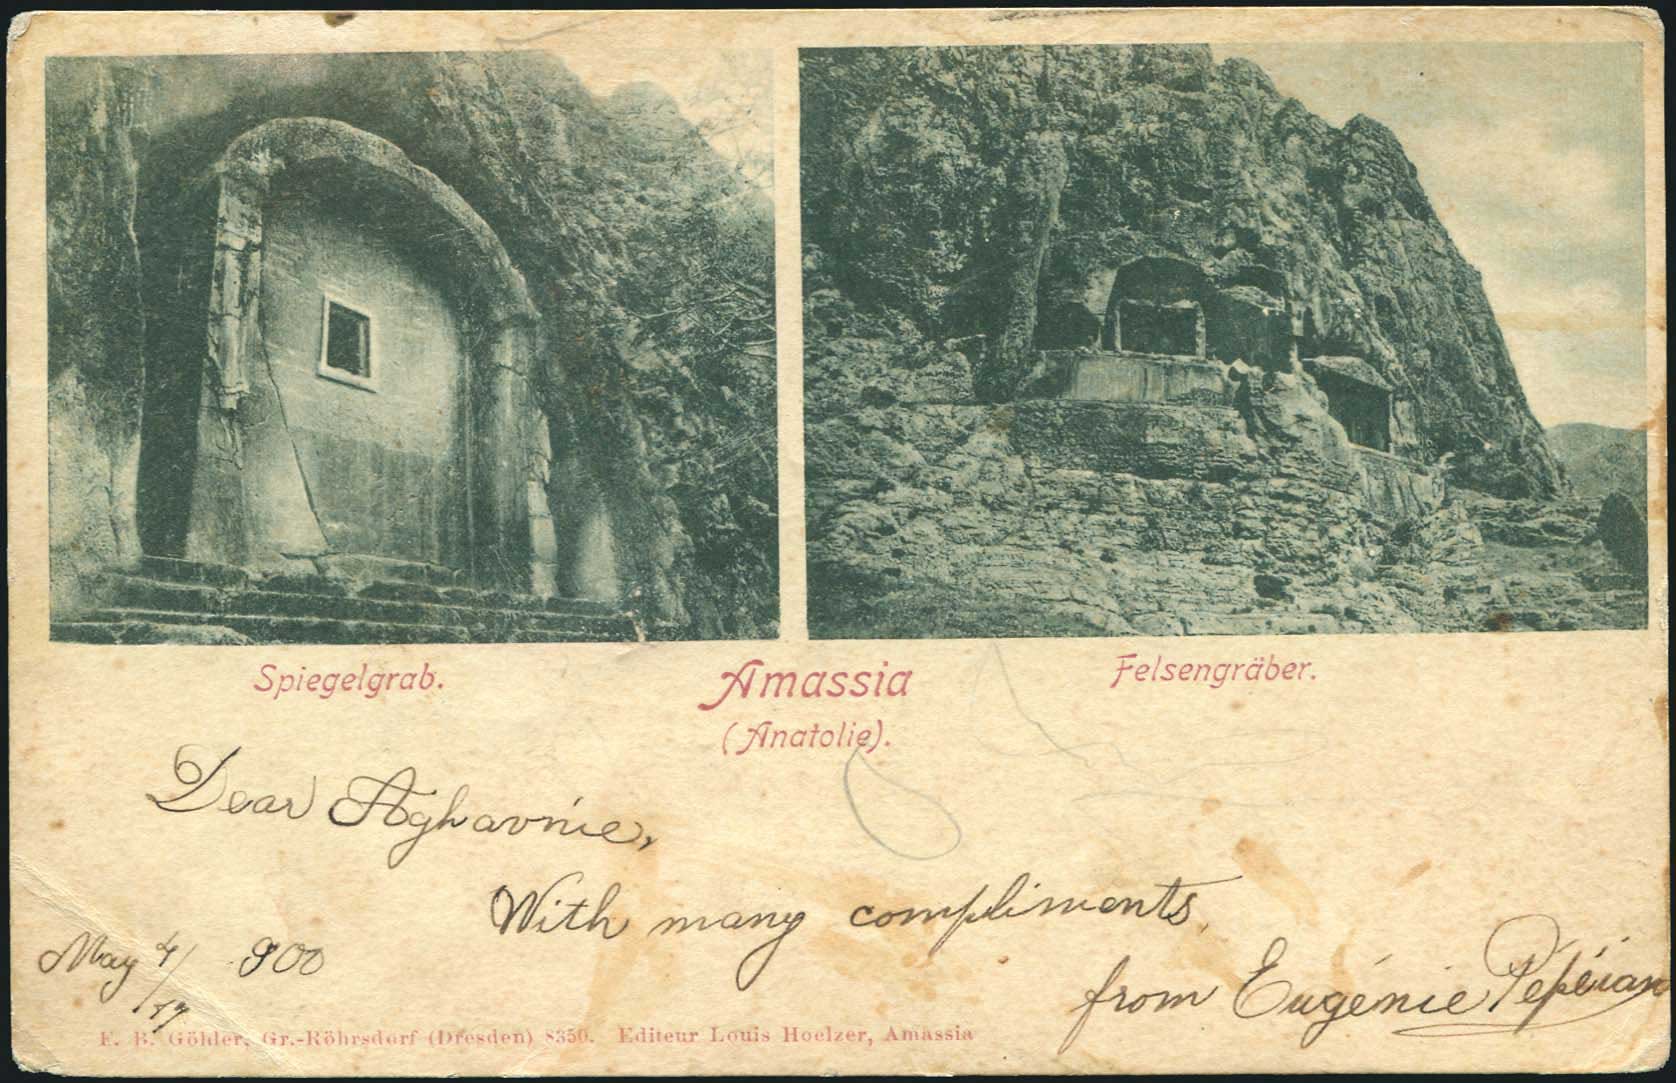 Spiegelgrab.
Amassia
(Anatolie).
Felsengräber.
Dear Aghavnie,
With many compliments,
from Eugénie Pépéian
May 4/17 900
F. B. Göhler, Gr.-Röhrsdorf (Dresden) 8350. Editeur Louis Hoelzer, Amassia